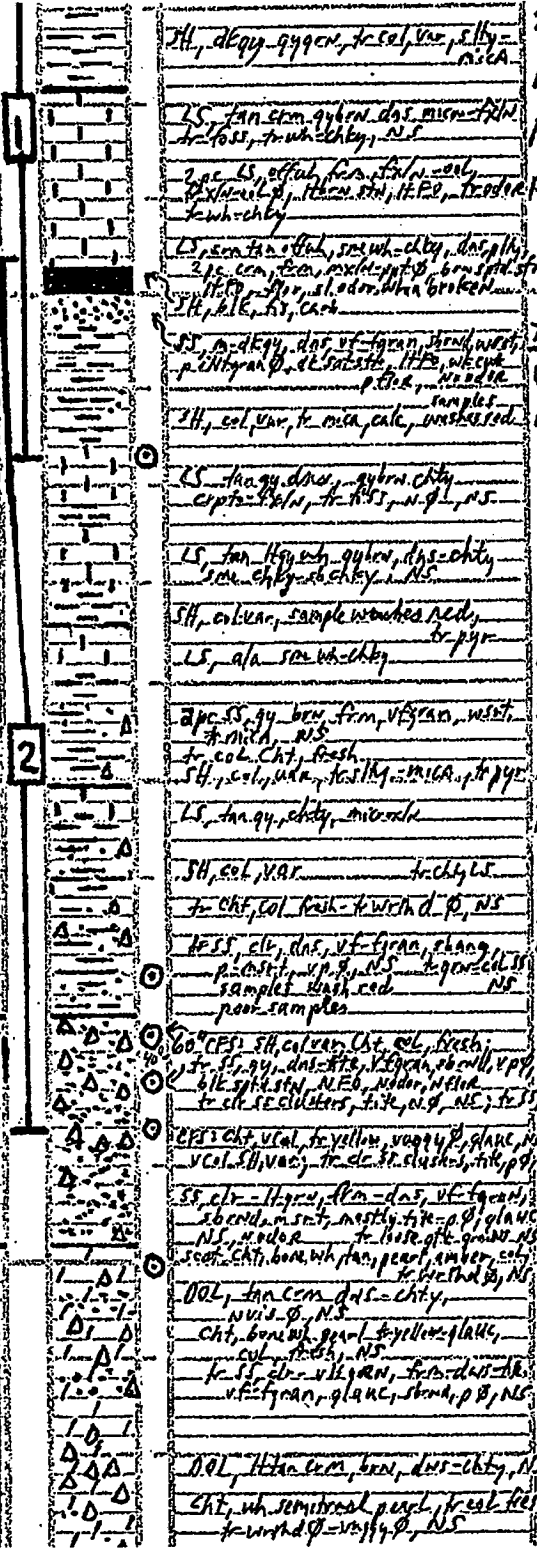 SH, dkgy gygrn, tr col, var, slty-
mica
1
LS, tan crm gybrn dns micro-fxln
tr foss, tr wh-chky, NS
2 pc LS, offwh, frm, fxln-ool,
ltbrn stn, ltFO, tr odor
tr wh-chky
LS, tan offwh, sme wh-chky, dns,
2pc crm, frm, mxln-ppt Ø, brn sptd
ltFO, flor, sl. odor when broken
SH, blk, carb
SS, m-dkgy, dns, vf-fgran, sbrnd, wsrt,
p intgran Ø, dk sat stn, ltFO,
flor, no odor
samples
SH, col, var, tr mica, calc, washes red
LS tan gy dns, gybrn chty
crypto-fxln, tr foss, n Ø, NS
LS, tan ltgy wh gybrn, dns-chty
sme chky-sbchky, NS
SH, col var, sample washes red,
tr pyr
LS, a/a sme wh-chky
2pc SS, gy brn, frm, vfgran, wsrt,
tr mica, NS
tr col Cht, fresh
SH, col, var, tr slty-mica, tr pyr
2
LS, tan gy, chty, microxln
SH, col, var tr chty LS
tr Cht, col fresh-tr wrthd Ø, NS
tr SS, clr, dns, vf-fgran, sbang,
p-msrt, vpØ, NS tr grn-col SS
samples wash red NS
poor samples
60" CFS: SH, col var, Cht, col, fresh;
40
tr SS, gy, dns-tite, vfgran, sbrnd, vpØ,
blk sptd stn, NFO, Nodor, NFlor
tr clr SS clusters, tite, NØ, NS; tr SS
CFS: Cht, vcol, tr yellow, vuggy Ø, glauc,
vcol SH, var; tr clr SS clusters, tite, pØ,
SS, clr-ltgrn, frm-dns, vf-fgran,
sbrnd, msrt, mostly tite-pØ, glauc
NS, Nodor tr loose qtz grains NS
Cht, bone, wh, tan, pearl, amber, col,
tr wrthd Ø, NS
DOL, tan crm dns-chty,
nvis Ø, NS
Cht, bone wh pearl tr yellow-glauc,
col fresh, NS
tr SS, clr-vltgrn, frm-dns-tite,
vf-fgran, glauc, sbrnd, pØ, NS
DOL, lttan crm, brn, dns-chty,
Cht, wh semitrnsl pearl, tr col
tr wrthd Ø-vuggy Ø, NS